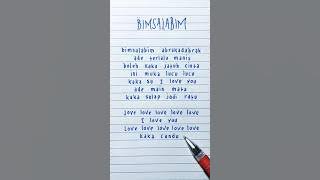 BIMSALABIM
bimsalabim abrakadabrak
ade terlalu manis
boleh kaka jatuh cinta
ini muka lucu lucu
kaka su I love you
ade main mata
kaka sulap jadi ratu
love love love love love
I love you
love love love love love
kaka candu